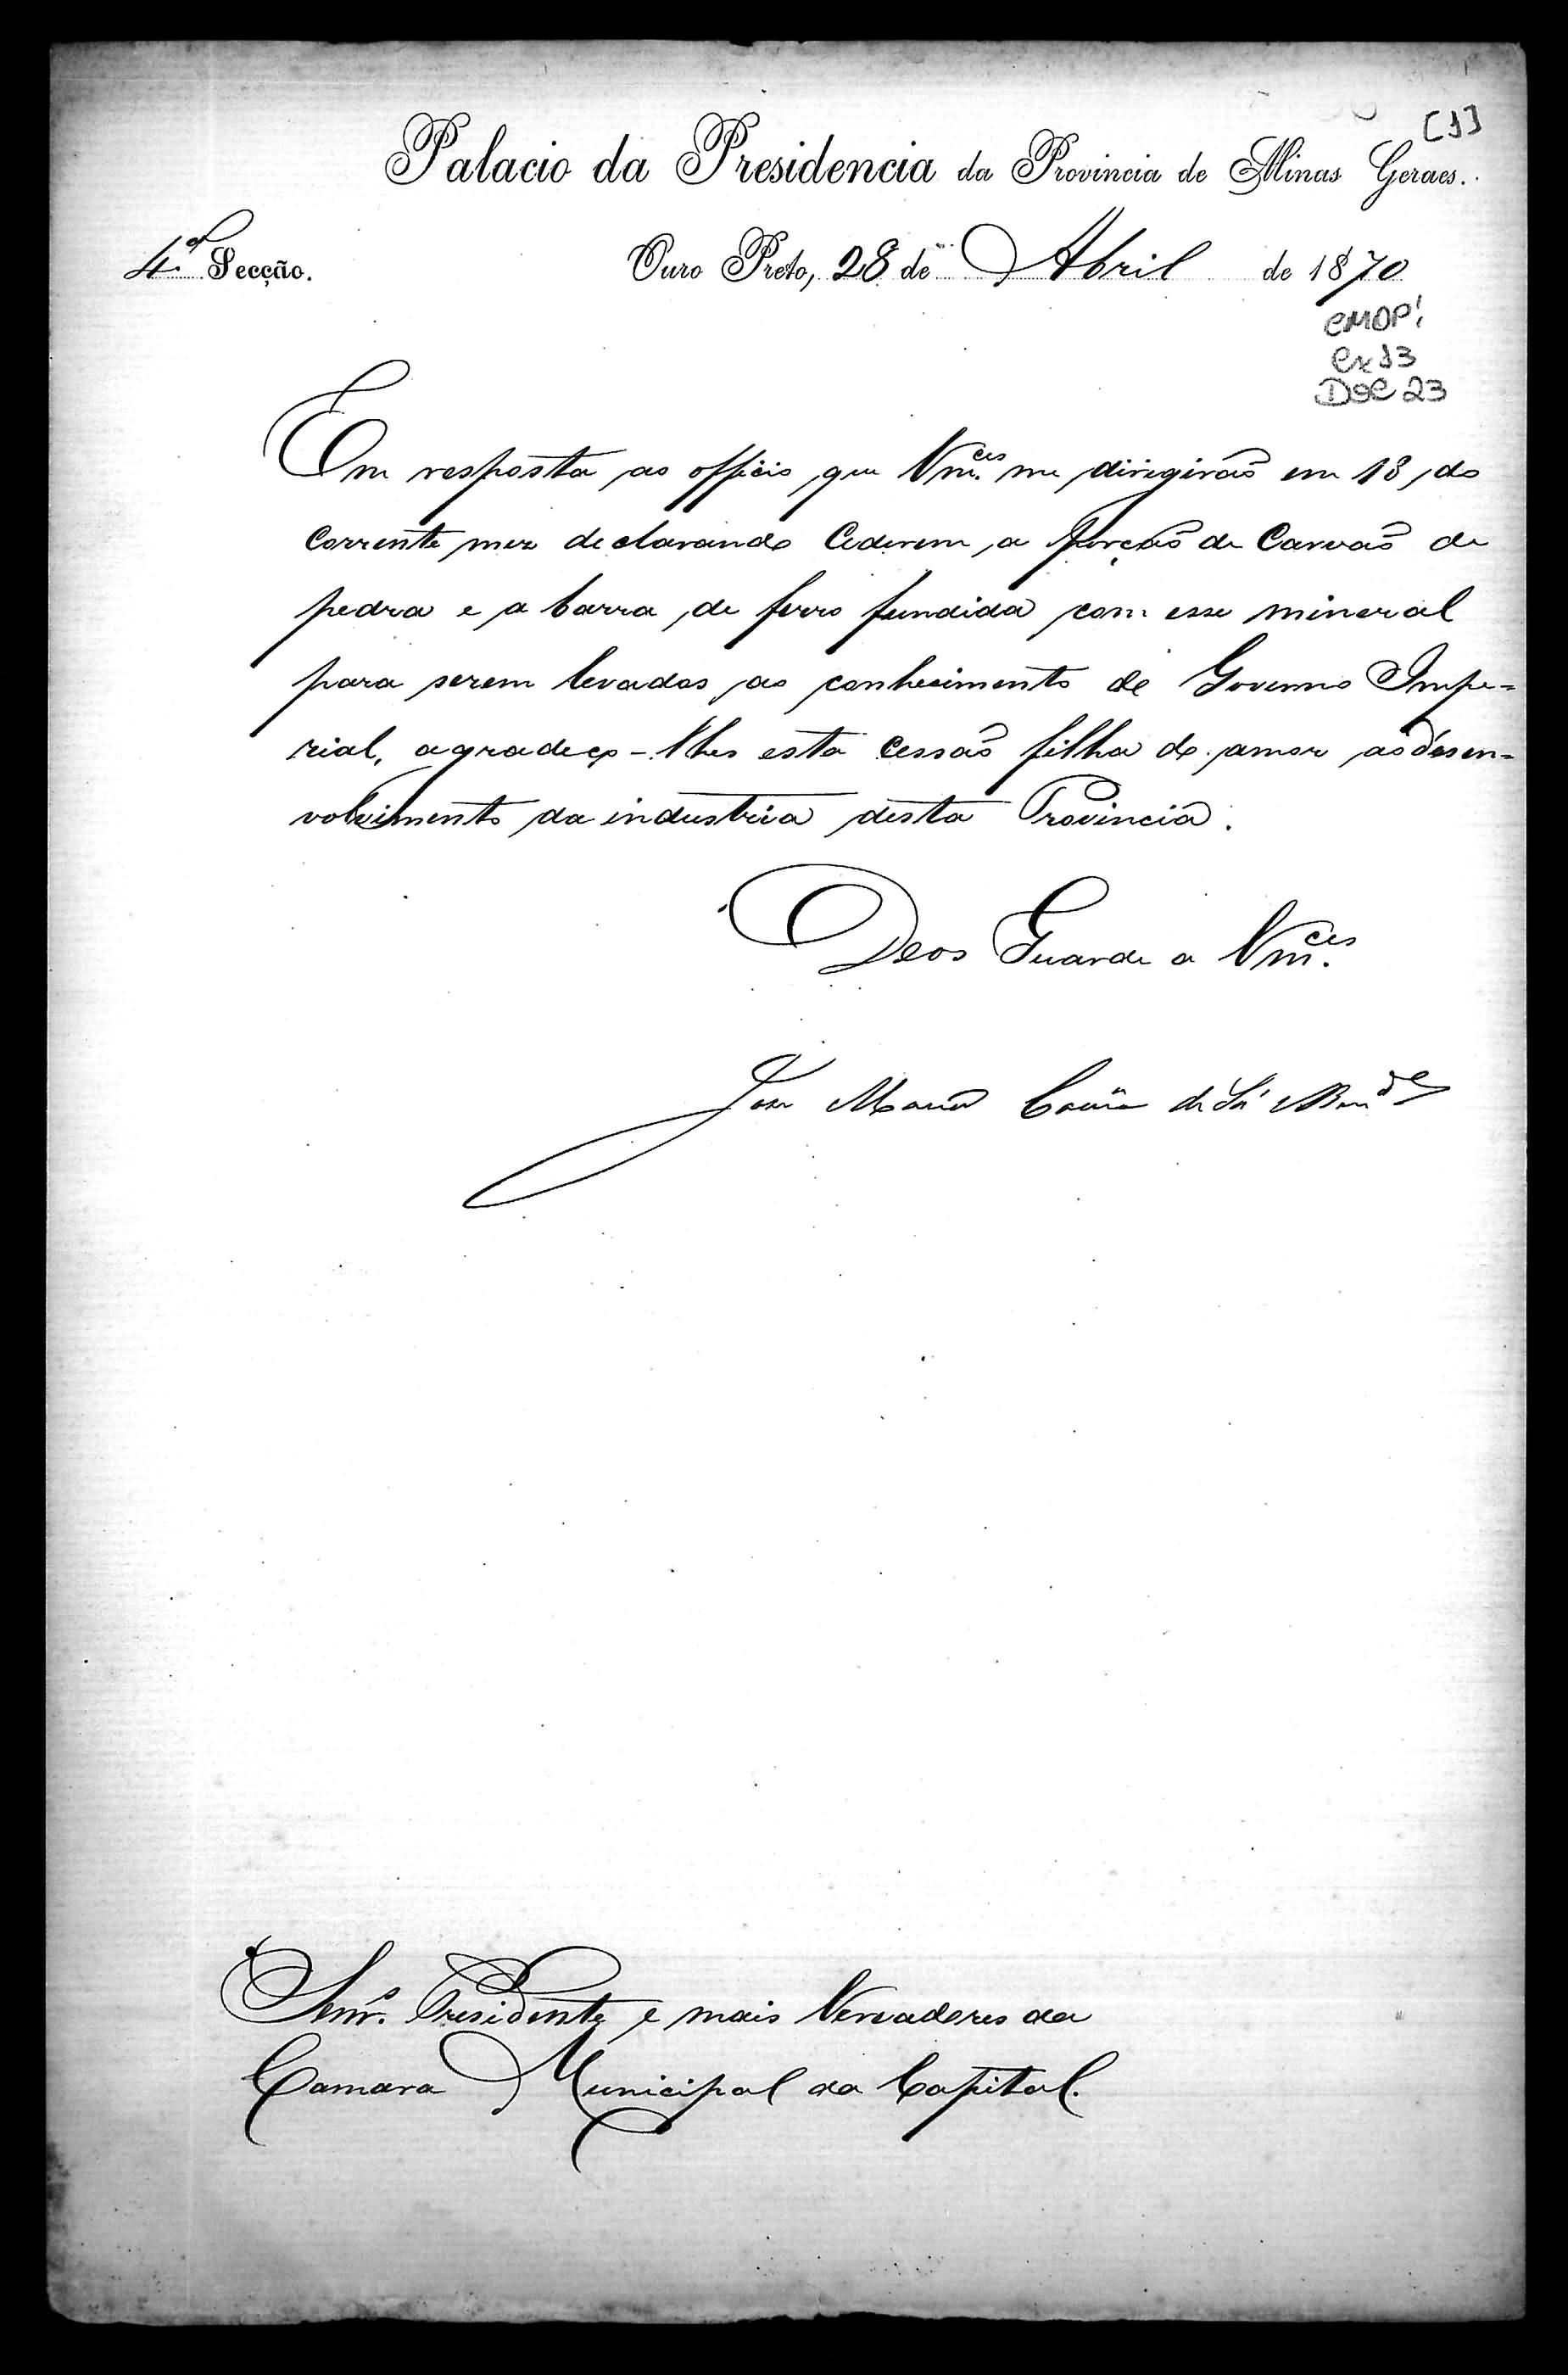 [1]
Palacio da Presidencia da Provincia de Minas Geraes.
4ª Secção.
Ouro Preto, 28 de Abril de 1870
CMOP!
Cx 13
DOC 23
Em resposta ao officio que Vm.ces me dirigirão em 18 do
corrente mez declarando cederem a porção de Carvão de
pedra e a barra de ferro fundida com esse mineral
para serem levados ao conhecimento do Governo Impe=
rial, agradeço-lhes esta cessão filha do amor ao desen=
volvimento da industria desta Provincia.
Deos Guarde a Vm.ces
José Maria de Sá
Snr.s Presidente e mais Vereadores da
Camara Municipal da Capital.